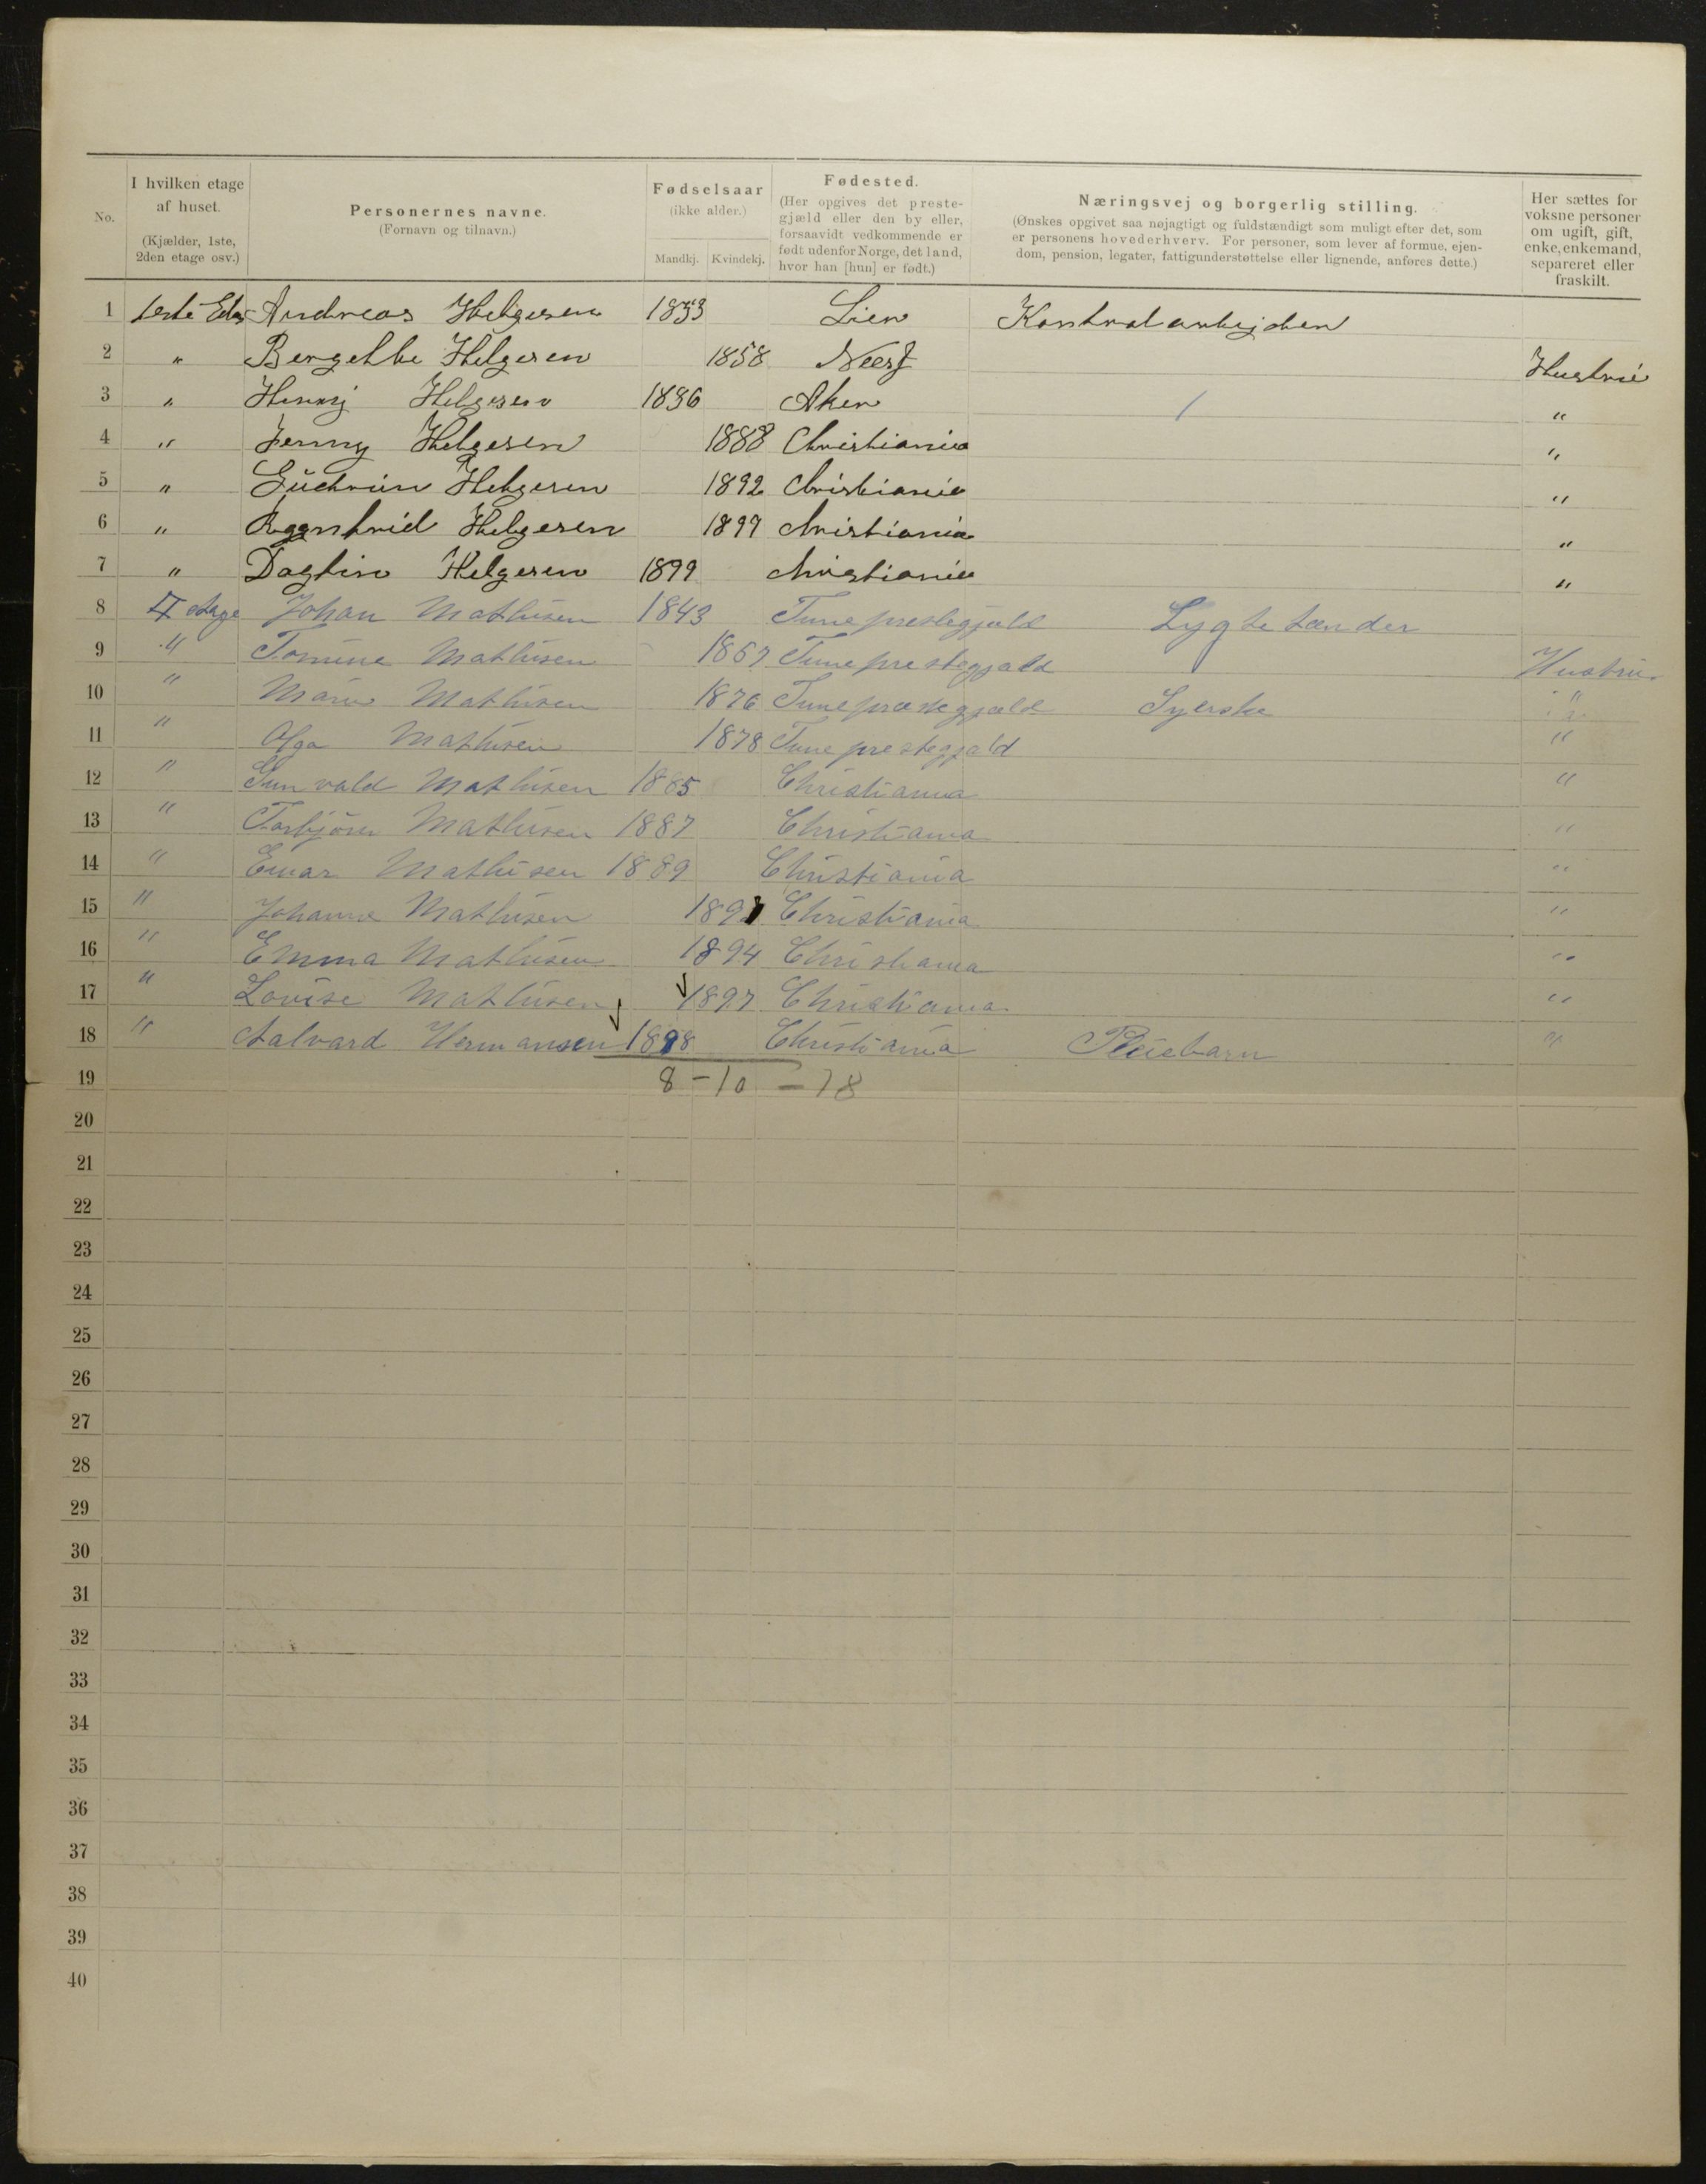 No.
I hvilken etage af huset.
(Kjælder, 1ste, 2den etage osv.)
Personernes navne.
(Fornavn og tilnavn.)
Fødselsaar
(ikke alder.)
Mandkj. Kvindekj.
Fødested.
(Her opgives det preste-
gjæld eller den by eller,
forsaavidt vedkommende er
født udenfor Norge, det land,
hvor han [hun] er født.)
Næringsvej og borgerlig stilling.
(Ønskes opgivet saa nøjagtigt og fuldstændigt som muligt efter det, som
er personens hovederhverv. For personer, som lever af formue, ejen-
dom, pension, legater, fattigunderstøttelse eller lignende, anføres dette.)
Her sættes for
voksne personer
om ugift, gift,
enke, enkemand,
separeret eller
fraskilt.
1 Andreas Helgesen 1853 Lier
2 " Helgesen 1858 Hustru
3 " Helgesen 1886 Aker "
4 " Jenny Helgesen 1888 Christiania "
5 " Gudrun Helgesen 1892 Christiania "
6 " Helgesen 1897 Christiania "
7 " Dagfin Helgesen 1899 Christiania "
8 4 etage Johan Mathisen 1843 Tune prestegjæld Lygtetænder
9 " Tomine Mathisen Tune prestegjæld Hustru
10 " Marie Mathisen 1876 Tune prestegjæld Syerske "
11 " Olga Mathisen 1878 Tune prestegjæld "
12 " Sunvald Mathisen 1885 Christiania "
13 " Torbjörn Mathisen 1887 Christiania "
14 " Einar Mathisen 1889 Christiania "
15 " Johanne Mathisen Christiania "
16 " Emma Mathisen 1894 Christiania "
17 " Lovise Mathisen 1897 Christiania "
18 " Halvard Hermansen 1898 Christiania Pleiebarn "
19 8 - 10 - 18
20
21
22
23
24
25
26
27
28
29
30
31
32
33
34
35
36
37
38
39
40